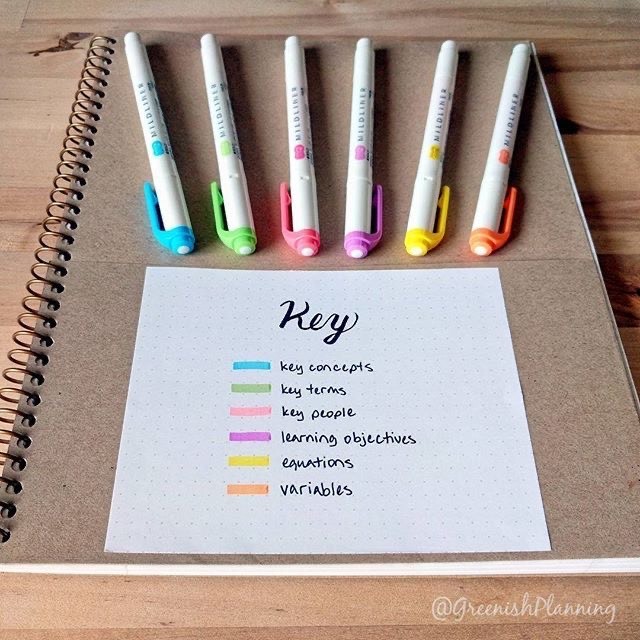 MILDLINER
MILDLINER
MILDLINER
MILDLINER
MILDLINER
MILDLINER
Key
key concepts
key terms
key people
learning objectives
equations
variables
@GreenishPlanning